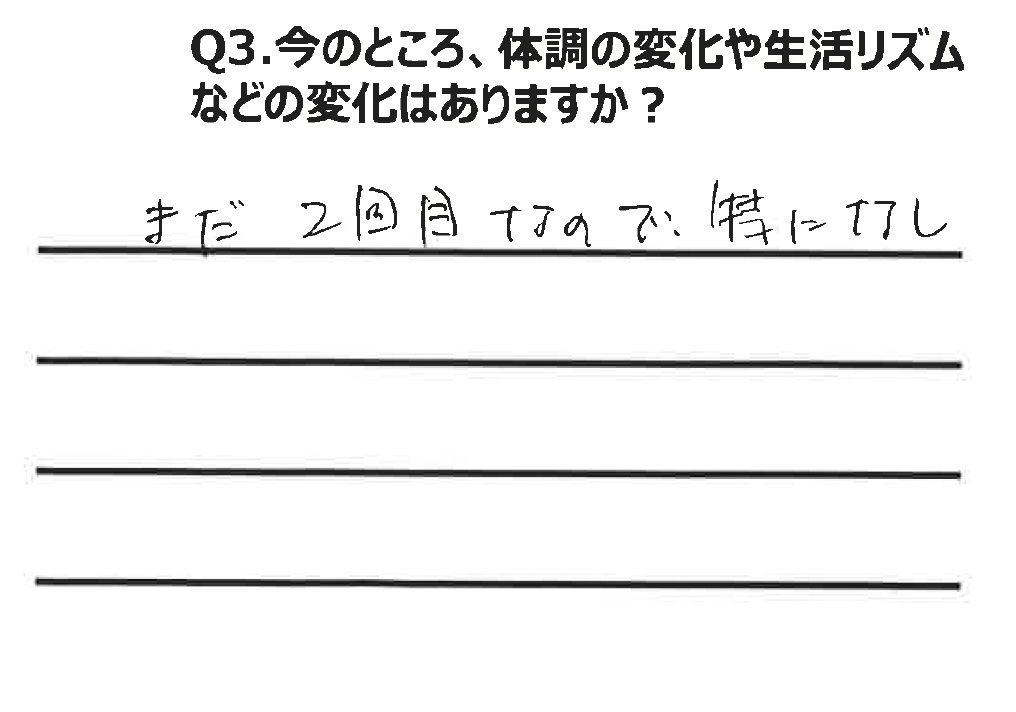 Q3.今のところ、体調の変化や生活リズム
などの変化はありますか？
まだ 2回目なので、特になし